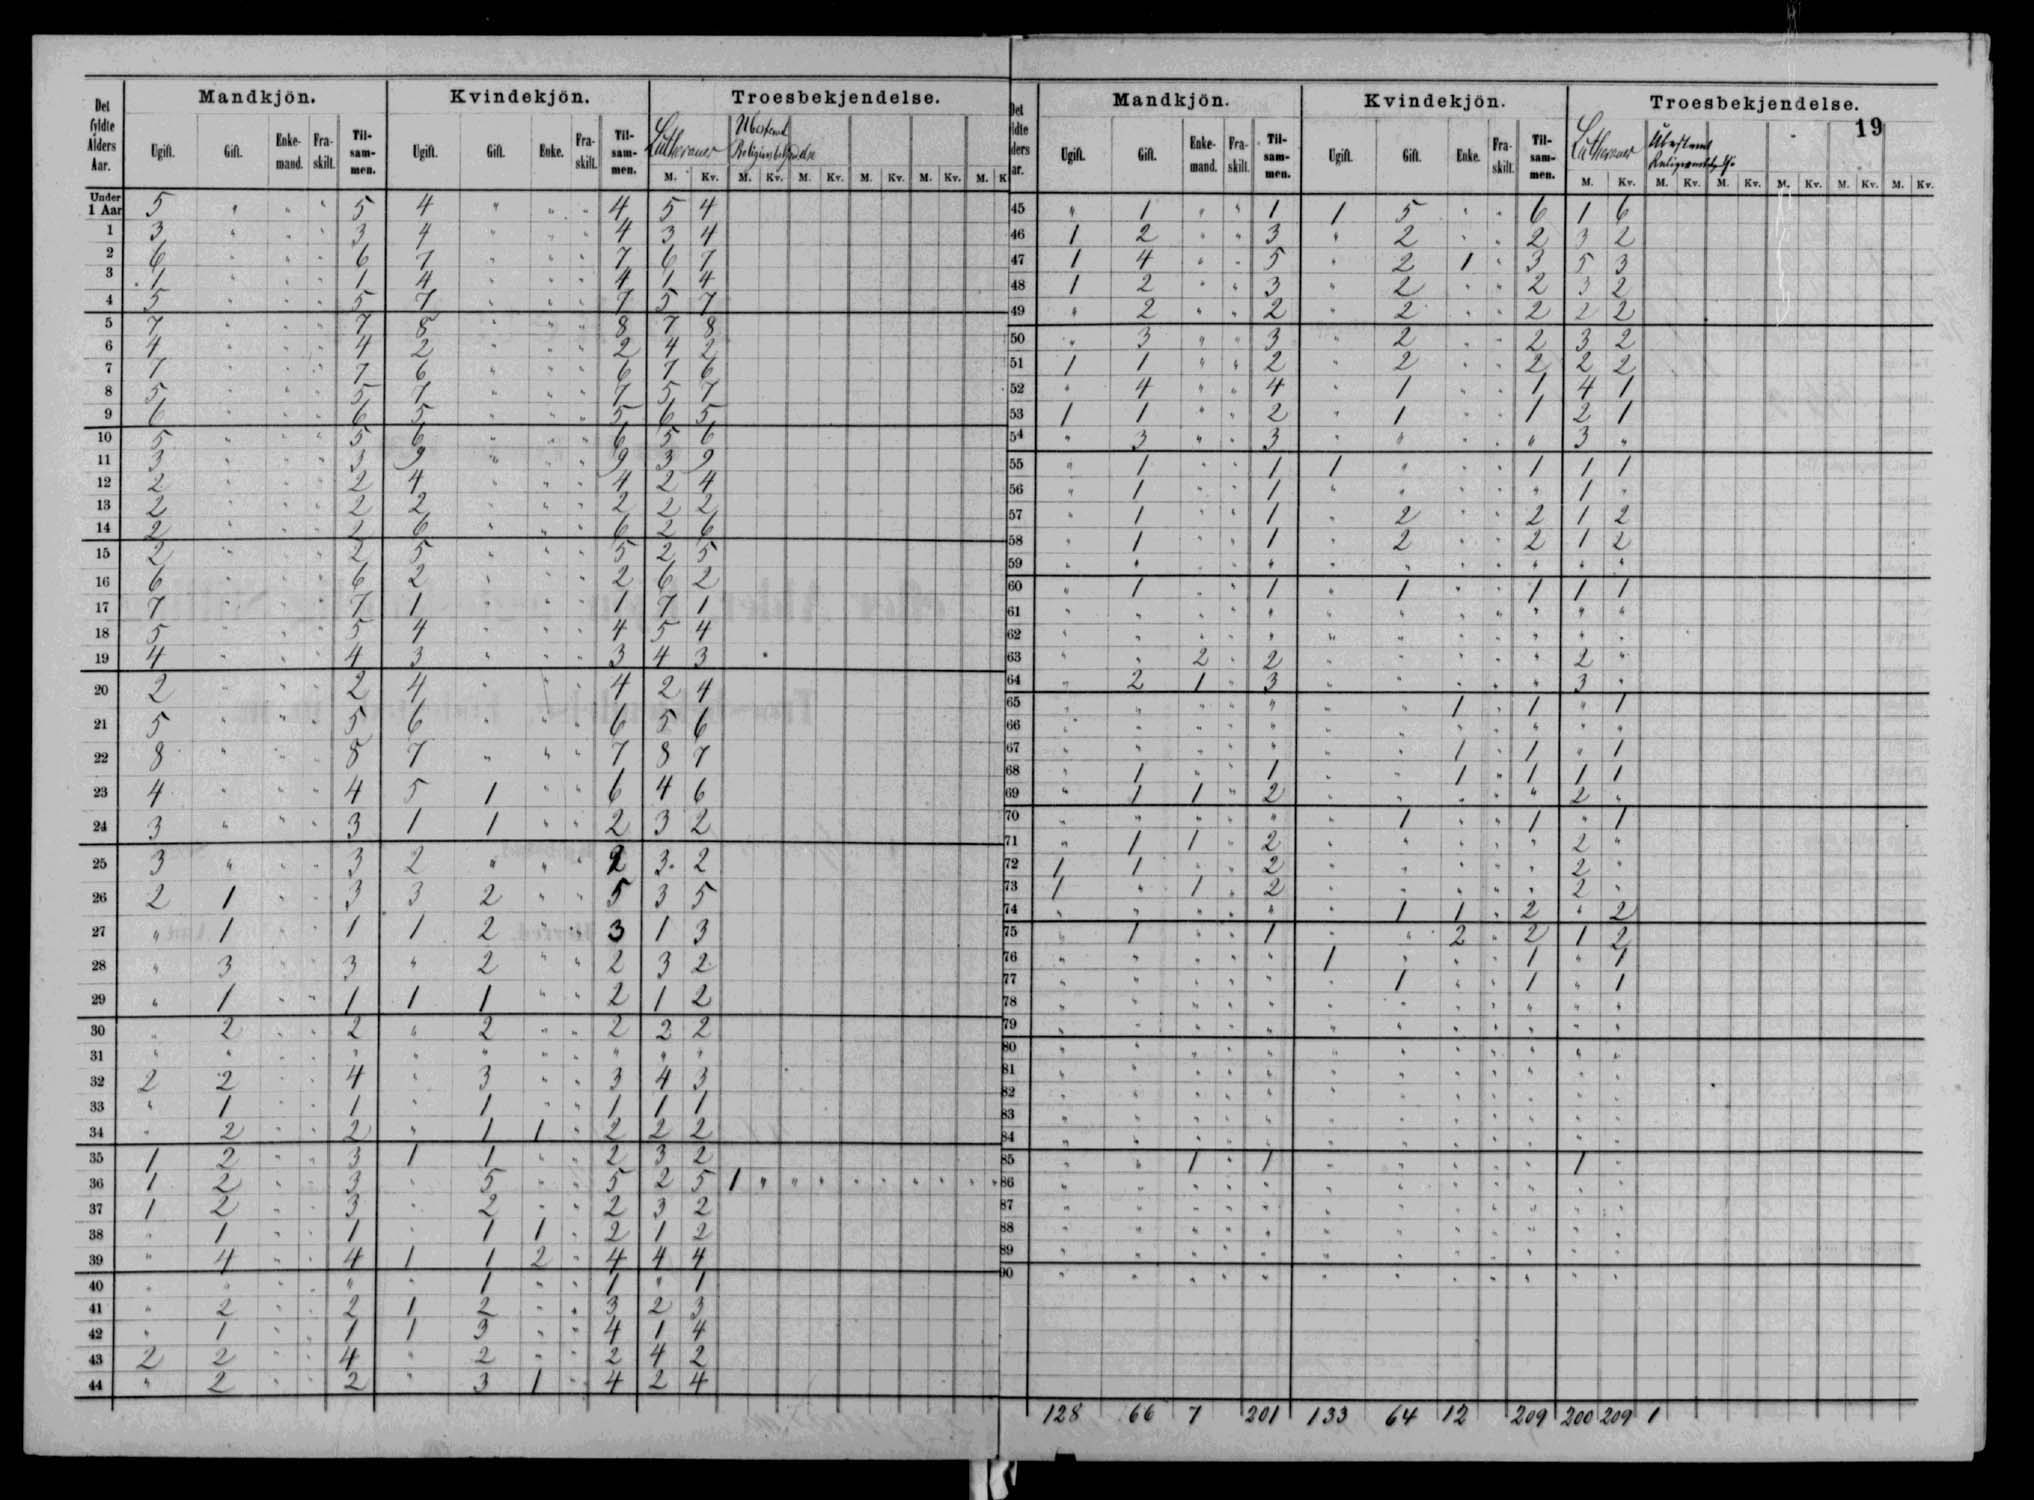 Mandkjön. Kvindekjön. Troesbekjendelse.
Det fyldte Alders Aar. Ugift. Gift. Enke-mand. Fra-skilt. Til-sam-men. Ugift. Gift. Enke. Fra-skilt. Til-sam-men. Lutheraner Ubestemt
M. Kv. M. Kv. M. Kv. M. Kv. M. Kv. M. K
Under 1 Aar 5 " " " 5 4 " " " 4 5 4
1 3 " " " 3 4 " " " 4 3 4
2 6 " " " 6 7 " " " 7 6 7
3 1 " " " 1 4 " " " 4 1 4
4 5 " " " 5 7 " " " 7 5 7
5 7 " " " 7 8 " " " 8 7 8
6 4 " " " 4 2 " " " 2 4 2
7 7 " " " 7 6 " " " 6 7 6
8 5 " " " 5 7 " " " 7 5 7
9 6 " " " 6 5 " " " 5 6 5
10 5 " " " 5 6 " " " 6 5 6
11 3 " " " 3 9 " " " 9 3 9
12 2 " " " 2 4 " " " 4 2 4
13 2 " " " 2 2 " " " 2 2 2
14 2 " " " 2 6 " " " 6 2 6
15 2 " " " 2 5 " " " 5 2 5
16 6 " " " 6 2 " " " 2 6 2
17 7 " " " 7 1 " " " 1 7 1
18 5 " " " 5 4 " " " 4 5 4
19 4 " " " 4 3 " " " 3 4 3
20 2 " " " 2 4 " " " 4 2 4
21 5 " " " 5 6 " " " 6 5 6
22 8 " " " 8 7 " " " 7 8 7
23 4 " " " 4 5 1 " " 6 4 6
24 3 " " " 3 1 1 " " 2 3 2
25 3 " " " 3 2 " " " 2 3 2
26 2 1 " " 3 3 2 " " 5 3 5
27 " 1 " " 1 1 2 " " 3 1 3
28 " 3 " " 3 " 2 " " 2 3 2
29 " 1 " " 1 1 1 " " 2 1 2
30 " 2 " " 2 " 2 " " 2 2 2
31 " " " " " " " " " " " "
32 2 2 " " 4 " 3 " " 3 4 3
33 " 1 " " 1 " 1 " " 1 1 1
34 " 2 " " 2 " 1 1 " 2 2 2
35 1 2 " " 3 1 1 " " 2 3 2
36 1 2 " " 3 " 5 " " 5 2 5 1 " " " " " " " " "
37 1 2 " " 3 " 2 " " 2 3 2
38 " 1 " " 1 " 1 1 " 2 1 2
39 " 4 " " 4 1 1 2 " 4 4 4
40 " " " " " " 1 " " 1 " 1
41 " 2 " " 2 1 2 " " 3 2 3
42 " 1 " " 1 1 3 " " 4 1 4
43 2 2 " " 4 " 2 " " 2 4 2
44 " 2 " " 2 " 3 1 " 4 2 4
Mandkjön. Kvindekjön. Troesbekjendelse.
19
Det ldte ders ar. Ugift. Gift. Enke-mand. Fra-skilt. Til-sam-men. Ugift. Gift. Enke. Fra-skilt. Til-sam-men. Lutheraner Ubestemt
M. Kv. M. Kv. M. Kv. M. Kv. M. Kv. M. Kv.
45 " 1 " " 1 1 5 " " 6 1 6
46 1 2 " " 3 " 2 " " 2 3 2
47 1 4 " " 5 " 2 1 " 3 5 3
48 1 2 " " 3 " 2 " " 2 3 2
49 " 2 " " 2 " 2 " " 2 2 2
50 " 3 " " 3 " 2 " " 2 3 2
51 1 1 " " 2 " 2 " " 2 2 2
52 " 4 " " 4 " 1 " " 1 4 1
53 1 1 " " 2 " 1 " " 1 2 1
54 " 3 " " 3 " " " " " 3 "
55 " 1 " " 1 1 " " " 1 1 1
56 " 1 " " 1 " " " " " 1 "
57 " 1 " " 1 " 2 " " 2 1 2
58 " 1 " " 1 " 2 " " 2 1 2
59 " " " " " " " " " " " "
60 " 1 " " 1 " 1 " " 1 1 1
61 " " " " " " " " " " " "
62 " " " " " " " " " " " "
63 " " 2 " 2 " " " " " 2 "
64 " 2 1 " 3 " " " " " 3 "
65 " " " " " " " 1 " 1 " 1
66 " " " " " " " " " " " "
67 " " " " " " " 1 " 1 " 1
68 " 1 " " 1 " " 1 " 1 1 1
69 " 1 1 " 2 " " " " " 2 "
70 " " " " " " 1 " " 1 " 1
71 " 1 1 " 2 " " " " " 2 "
72 1 1 " " 2 " " " " " 2 "
73 1 " 1 " 2 " " " " " 2 "
74 " " " " " " 1 1 " 2 " 2
75 " 1 " " 1 " " 2 " 2 1 2
76 " " " " " 1 " " " 1 " 1
77 " " " " " " 1 " " 1 " 1
78 " " " " " " " " " " " "
79 " " " " " " " " " " " "
80 " " " " " " " " " " " "
81 " " " " " " " " " " " "
82 " " " " " " " " " " " "
83 " " " " " " " " " " " "
84 " " " " " " " " " " " "
85 " " 1 " 1 " " " " " 1 "
86 " " " " " " " " " " " "
87 " " " " " " " " " " " "
88 " " " " " " " " " " " "
89 " " " " " " " " " " " "
90 " " " " " " " " " " " "
128 66 7 201 133 64 12 209 200 209 1